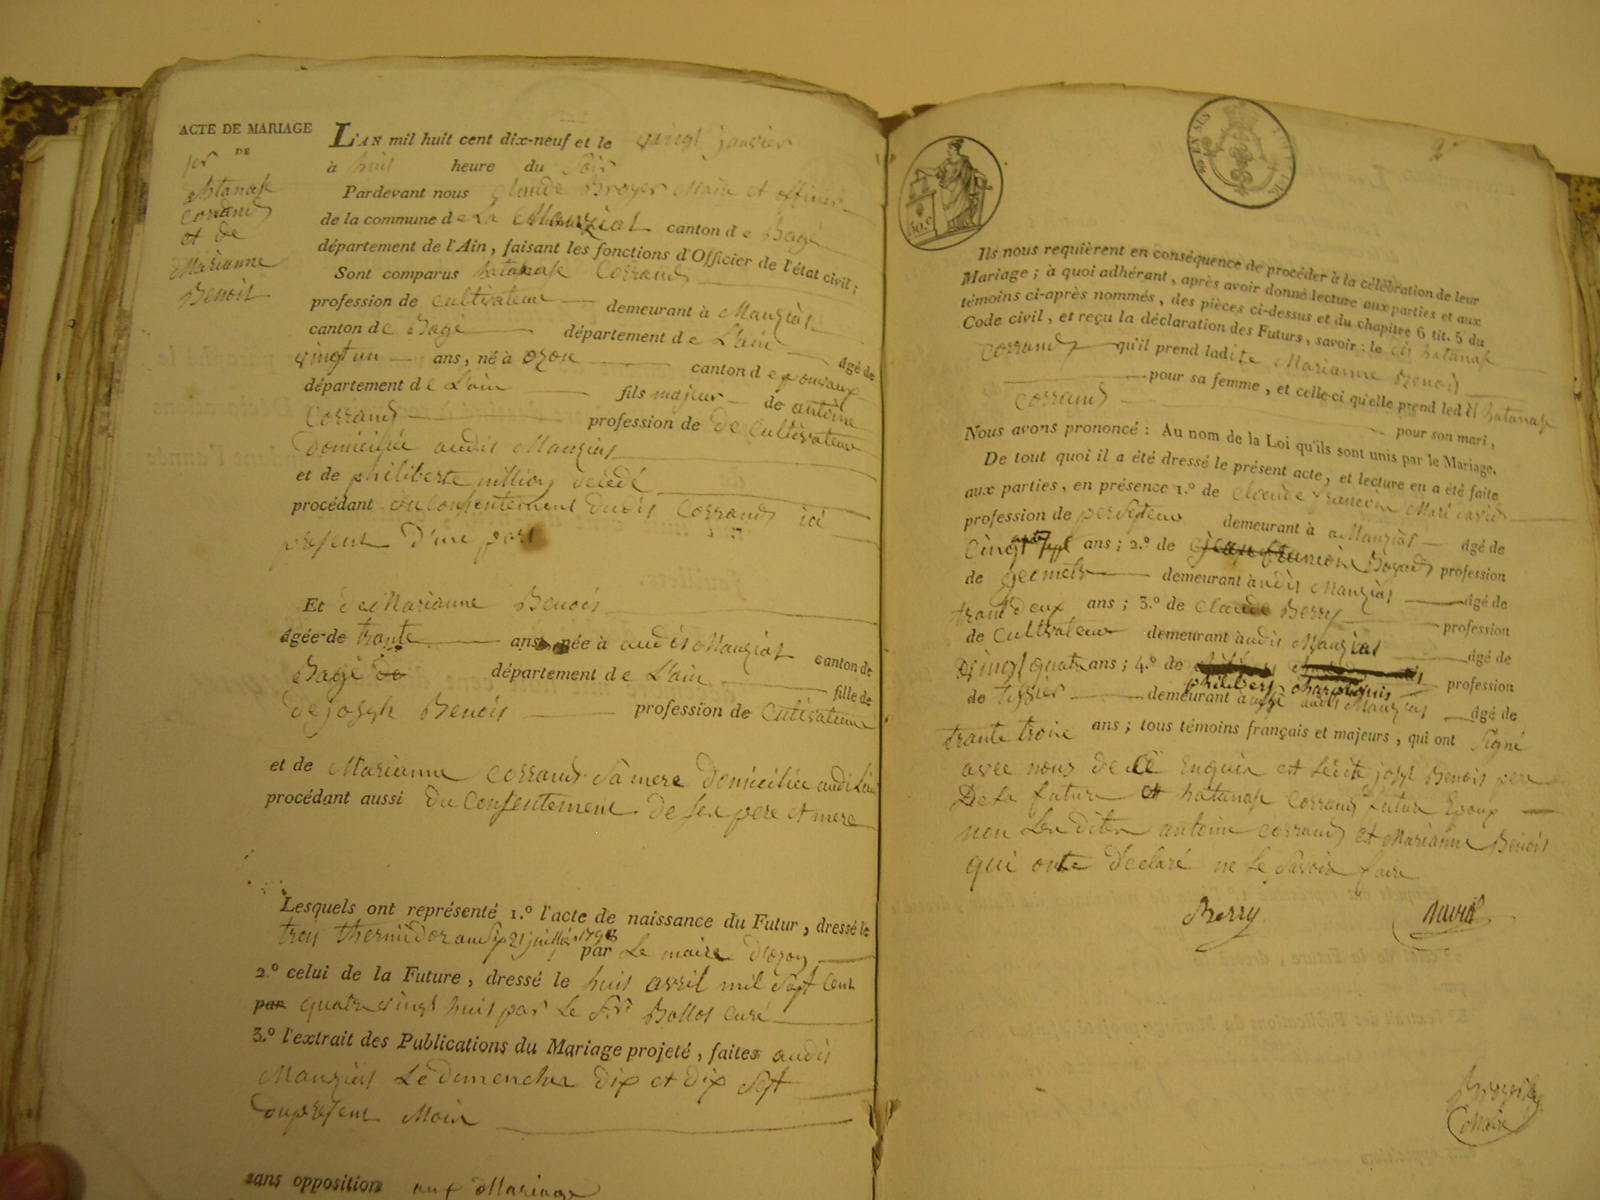 ACTE DE MARIAGE
DE
1er
hatanase
Corrand
et de
Marianne
Benoit
L'AN mil huit cent dix-neuf et le vingt janvier
à huit heure du soir
Pardevant nous Claude Broyer Maire et officier
de la commune de La Manziat canton de Bagé
département de l'Ain, faisant les fonctions d'Officier de l'état civil;
Sont comparus hatanase Corrand
profession de Cultivateur demeurant à Manziat
canton de Bagé département de L'ain âgé de
vingt un ans, né à ozon canton de ponvaux
département de L'ain fils majeur de antoine
Corrand profession de de Cultivateur
Domiciliée audit Manziat
et de philiberte million décédé
procédant du Consentement dudit Corrand ici
présent D'une part
Et de Marianne Benoit
âgée de trante ans née à audit Manziat canton de
Bagé de département de L'ain fille de
de joseph Benoit profession de Cultivateur
et de Marianne Corrand Sa mere Domiciliée audit Lieu
procédant aussi du Consentement de ses pere et mere
Lesquels ont représenté 1.º l'acte de naissance du Futur, dressé le
trois thermidor an six 21 juillet 1798 par Le maire D'ozon
2.º celui de la Future, dressé le huit avril mil sept Cent
par quatre vingt huit par Le Sr. Bollos Curé
3.º l'extrait des Publications du Mariage projeté, faites audit
Manziat Le dimenches dix et dix sept
Du présent Mois
sans opposition aux Mariage
2
30c
EN SUS
Ils nous requièrent en conséquence de procéder à la célébration de leur
Mariage; à quoi adhérant, après avoir donné lecture aux parties et aux
témoins ci-après nommés, des pièces ci-dessus et du chapitre 6 tit. 5 du
Code civil, et reçu la déclaration des Futurs, savoir: le dit hatanase
Corrand qu'il prend ladite Marianne Benoit
pour sa femme, et celle-ci qu'elle prend led it hatanase
Corrand pour son mari,
Nous avons prononcé: Au nom de la Loi qu'ils sont unis par le Mariage.
De tout quoi il a été dressé le présent acte, et lecture en a été faite
aux parties, en présence 1.º de Claude françois Mari David
profession de percepteur demeurant à a Manziat âgé de
vingt sept ans; 2.º de Boyard profession
de geometre demeurant audit Manziat âgé de
trant deux ans; 3.º de Claude Berry profession
de Cultivateur demeurant audit Manziat âgé de
vingt quatre ans; 4.º de philibert profession
de tissier demeurant audit Manziat âgé de
trante trois ans; tous témoins français et majeurs, qui ont signé
avec nous de Ce Enquis et Ledite joseph Benoit pere
De la future et hatanase Corrand futur Epoux
non Les dites antoine Corrand et Marianne Benoit
qui onte déclaré ne le savoir faire
Berry
David
Broyer
Maire